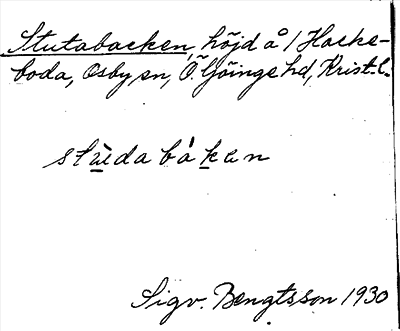 Stutabacken, höjd å / Hacke-
boda, Osby sn, Ö. Göinge hd, Krist. l.
stùdabákan
Sigv. Bengtsson 1930